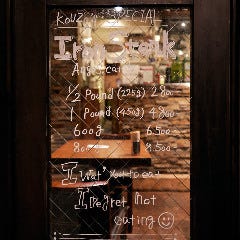 KOUZ SPECIAL
Iron Steak
1/2 Pound (225g) 2.800
1 Pound (450g) 4.800
600g 6.500
8.500
I Want You to eat
I Regret, not
eating